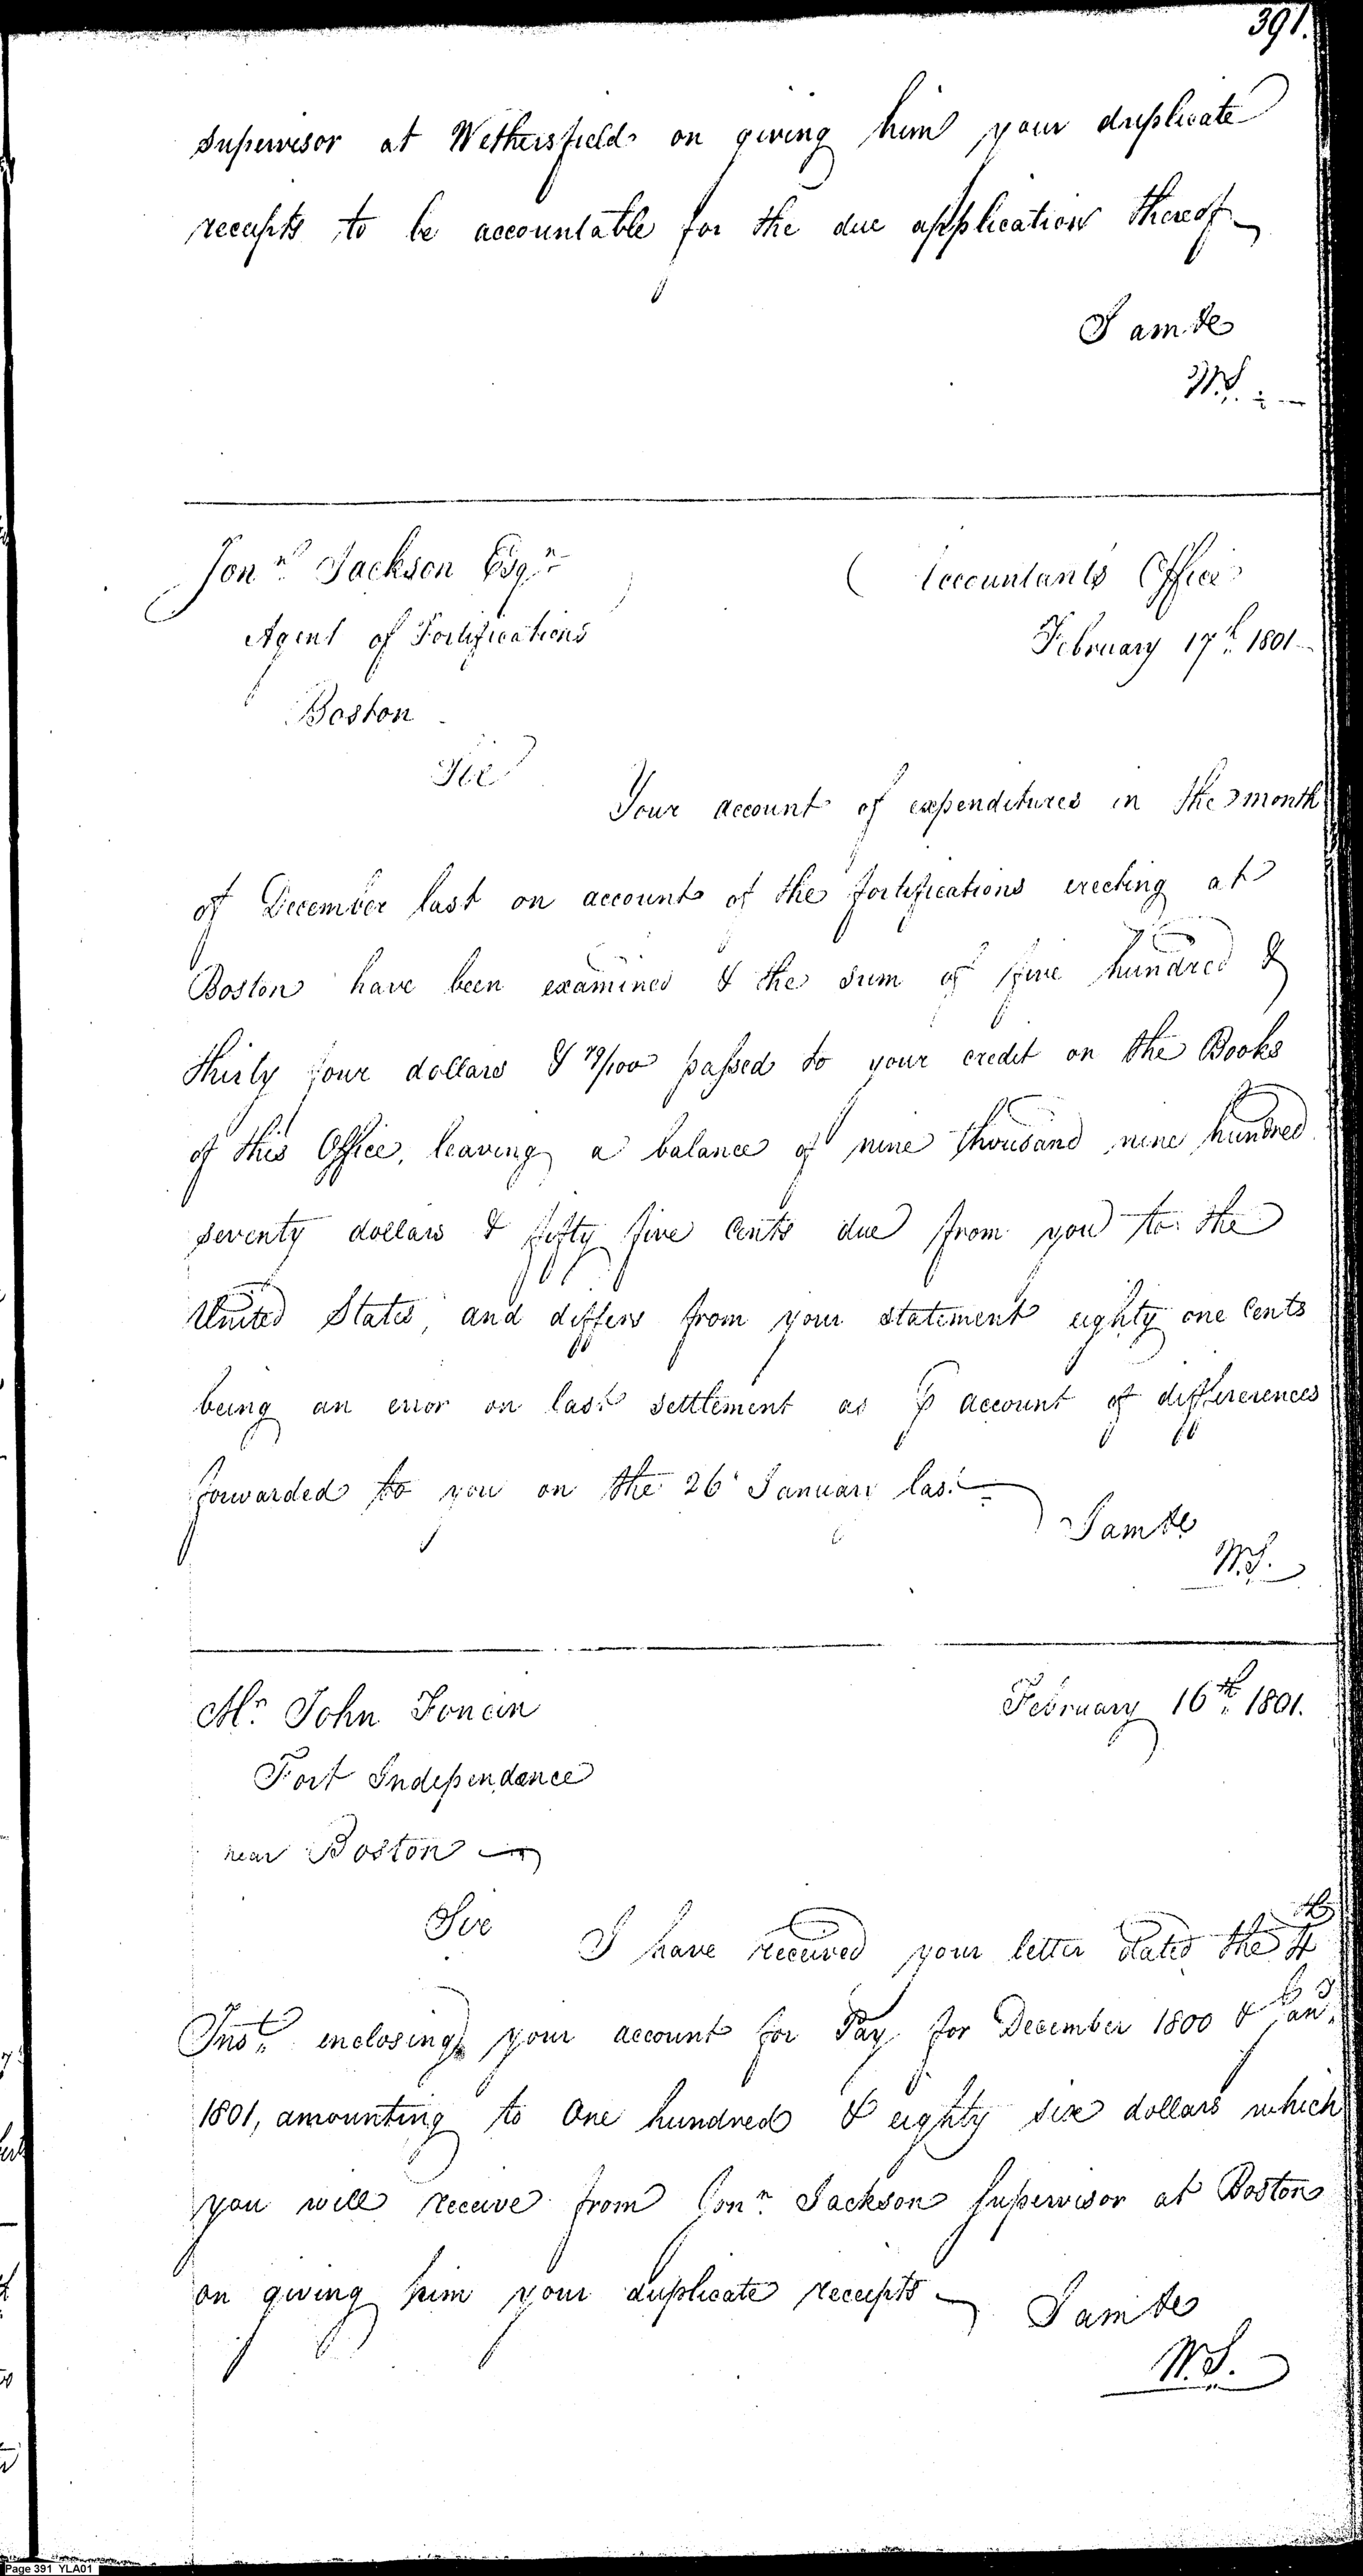 391.
supervisor at Wethersfield on giving him your duplicate
receipts to be accountable for the due application thereof
I am &c
W.S.
Jonn. Jackson Esqr.
Accountants Office
Agent of Fortifications
February 17th. 1801
Boston
Sir
Your account of expenditures in the month
of December last on account of the fortifications erecting at
Boston have been examined & the sum of five hundred &
thirty four dollars & 79/100 passed to your credit on the Books
of this Office, leaving a balance of nine thousand nine hundred
seventy dollars & fifty five Cents due from you to the
United States, and differs from your statement eighty one Cents
being an error on last settlement as ⅌ account of differerences
forwarded to you on the 26 January last
I am &c
W.S.
Mr. John Foncin
February 16th. 1801.
Fort Independance
near Boston
Sir
I have received your letter dated the 4th
Inst. enclosing your account for Pay for December 1800 & Jany.
1801, amounting to One hundred & eighty six dollars which
you will receive from Jonn. Jackson Supervisor at Boston
on giving him your duplicate receipts
I am &c
W.S.
Page 391 YLA01